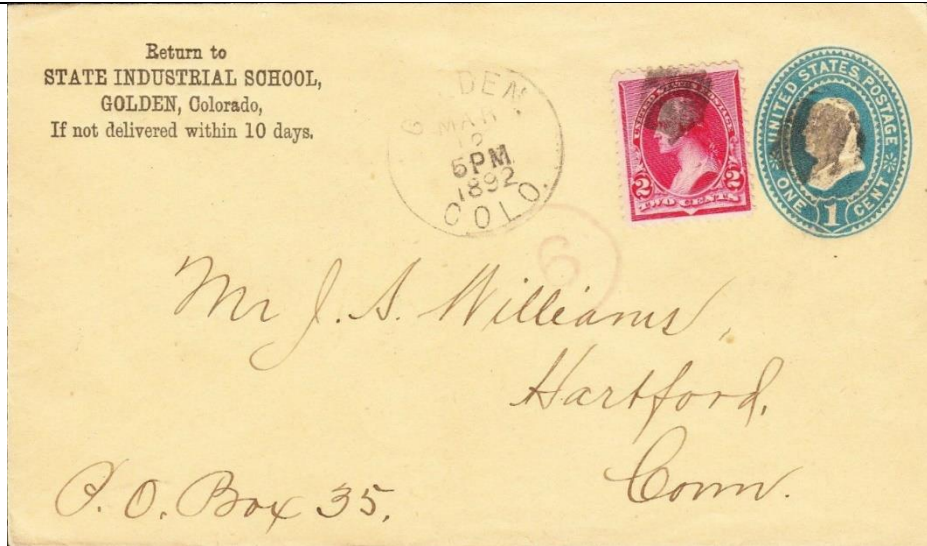 Return to
STATE INDUSTRIAL SCHOOL,
GOLDEN, Colorado,
If not delivered within 10 days.
GOLDEN,
MAR
5PM
1892
COLO.
2 2
UNITED STATES POSTAGE
ONE 1 CENT
6
Mr J. S. Williams,
Hartford,
Conn.
P. O. Box 35.